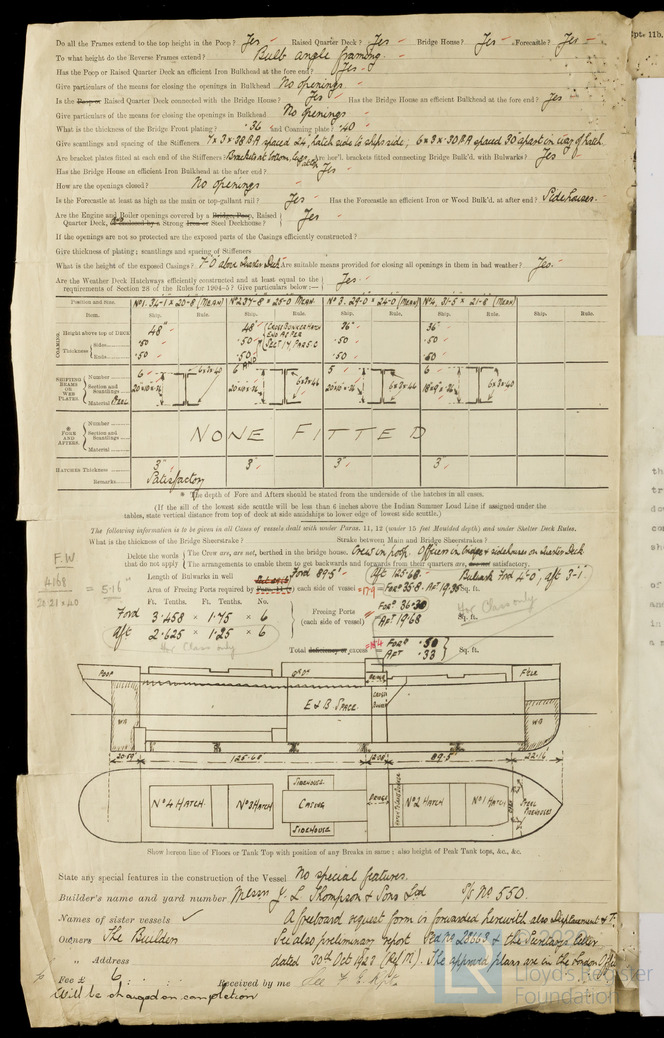 Do all the Frames extend to the top height in the Poop? Yes Raised Quarter Deck? Yes Bridge House? Yes Forecastle? Yes
Rpt. 11b.
To what height do the Reverse Frames extend? Bulb angle framing
Has the Poop or Raised Quarter Deck an efficient Iron Bulkhead at the fore end? Yes
Give particulars of the means for closing the openings in Bulkhead No openings
Is the Poop or Raised Quarter Deck connected with the Bridge House? Yes Has the Bridge House an efficient Bulkhead at the fore end? Yes
Give particulars of the means for closing the openings in Bulkhead No openings
What is the thickness of the Bridge Front plating? .36 And Coaming plate? .40
Give scantlings and spacing of the Stiffeners 7 x 3 x .38 B A spaced 24" hatch side to ships side, 6 x 3 x .30 BA spaced 30 apart in way of hatch
Are bracket plates fitted at each end of the Stiffeners? Brackets at bottom, lugs at top Are hor'l. brackets fitted connecting Bridge Bulk'd. with Bulwarks? Yes
Has the Bridge House an efficient Iron Bulkhead at the after end? Yes
How are the openings closed? No openings
Is the Forecastle at least as high as the main or top-gallant rail? Yes Has the Forecastle an efficient Iron or Wood Bulk'd, at after end? Sidehouses.
Are the Engine and Boiler openings covered by a Bridge, Poop, Raised
Quarter Deck, Strong Iron or Steel Deckhouse? Yes
If the openings are not so protected are the exposed parts of the Casings efficiently constructed?
Give thickness of plating; scantlings and spacing of Stiffeners
What is the height of the exposed Casings? 7'-0" above Quarter Deck Are suitable means provided for closing all openings in them in bad weather? Yes.
Are the Weather Deck Hatchways efficiently constructed and at least equal to the
requirements of Section 28 of the Rules for 1904-5? Give particulars below:— Yes
Position and Size. No 1. 34-1 x 20-8 (Mean) No 2 37-8 x 25-0 Mean. No 3. 29-0 x 24-0 (Mean) No 4. 31-5 x 21-8 (Mean)
Item. Ship. Rule. Ship. Rule. Ship. Rule. Ship. Rule.
COAMING Height above top of DECK 48" 48" 36" 36"
Thickness Sides .50 .50 .50 .50
Ends .50 .50 .50 .50
SHIFTING BEAMS OR WEB PLATES. Number 6 6 5 6
Section and Scantlings
Material
FORE AND AFTERS. Number
Section and Scantlings NONE FITTED
Material
HATCHES Thickness 3" 3" 3" 3"
Remarks Satisfactory
* The depth of Fore and Afters should be stated from the underside of the hatches in all cases.
(If the sill of the lowest side scuttle will be less than 6 inches above the Indian Summer Load Line if assigned under the
tables, state vertical distance from top of deck at side amidships to lower edge of lowest side scuttle.)
The following information is to be given in all Cases of vessels dealt with under Paras. 11, 12 (under 15 feet Moulded depth) and under Shelter Deck Rules.
What is the thickness of the Bridge Sheerstrake? Strake between Main and Bridge Sheerstrakes?
Delete the words that do not apply
The Crew are, are not, berthed in the bridge house. Crew in poop. Officers in bridge & sidehouses on quarter Deck
The arrangements to enable them to get backwards and forwards from their quarters are, are not satisfactory.
Length of Bulwarks in well Ford 89.5' Aft 125.68 Bulwark Ford 4'-0", aft 3'-1"
Area of Freeing Ports required by each side of vessel
Ft. Tenths. Ft. Tenths. No.
Ford 3.458 x 1.75 x 6
Aft 2.625 x 1.25 x 6
Freeing Ports (each side of vessel) For'd 36.30 Aft 19.68 Sq. ft.
for Class only
for Class only
Total deficiency or excess = For'd .50 Aft .33 Sq. ft.
F.W
POOP
Bridge
F'CLE
E & B SPACE
Cross Bunker
WB
WB
20.59' 125.68' 12.08' 89.5' 22.16'
No 4 HATCH
No 3 HATCH
SIDEHOUSE
CASING
SIDEHOUSE
BRIDGE
No 2 HATCH
No 1 HATCH
STEEL SIDEHOUSES
Show hereon line of Floors or Tank Top with position of any Breaks in same; also height of Peak Tank tops, &c., &c.
State any special features in the construction of the Vessel No special features.
Builder's name and yard number Messrs J. L. Thompson & Sons Ltd No 550.
Names of sister vessels ✓ A freeboard request form is forwarded herewith also Displacement &
Owners The Builders See also preliminary report & the Secretary's letter
„ Address dated 30th Oct 1923 The approved plans are in the London Office
Fee £ 6 : : Received by me
Will be charged on completion
LR
© 2020
Lloyd's Register
Foundation